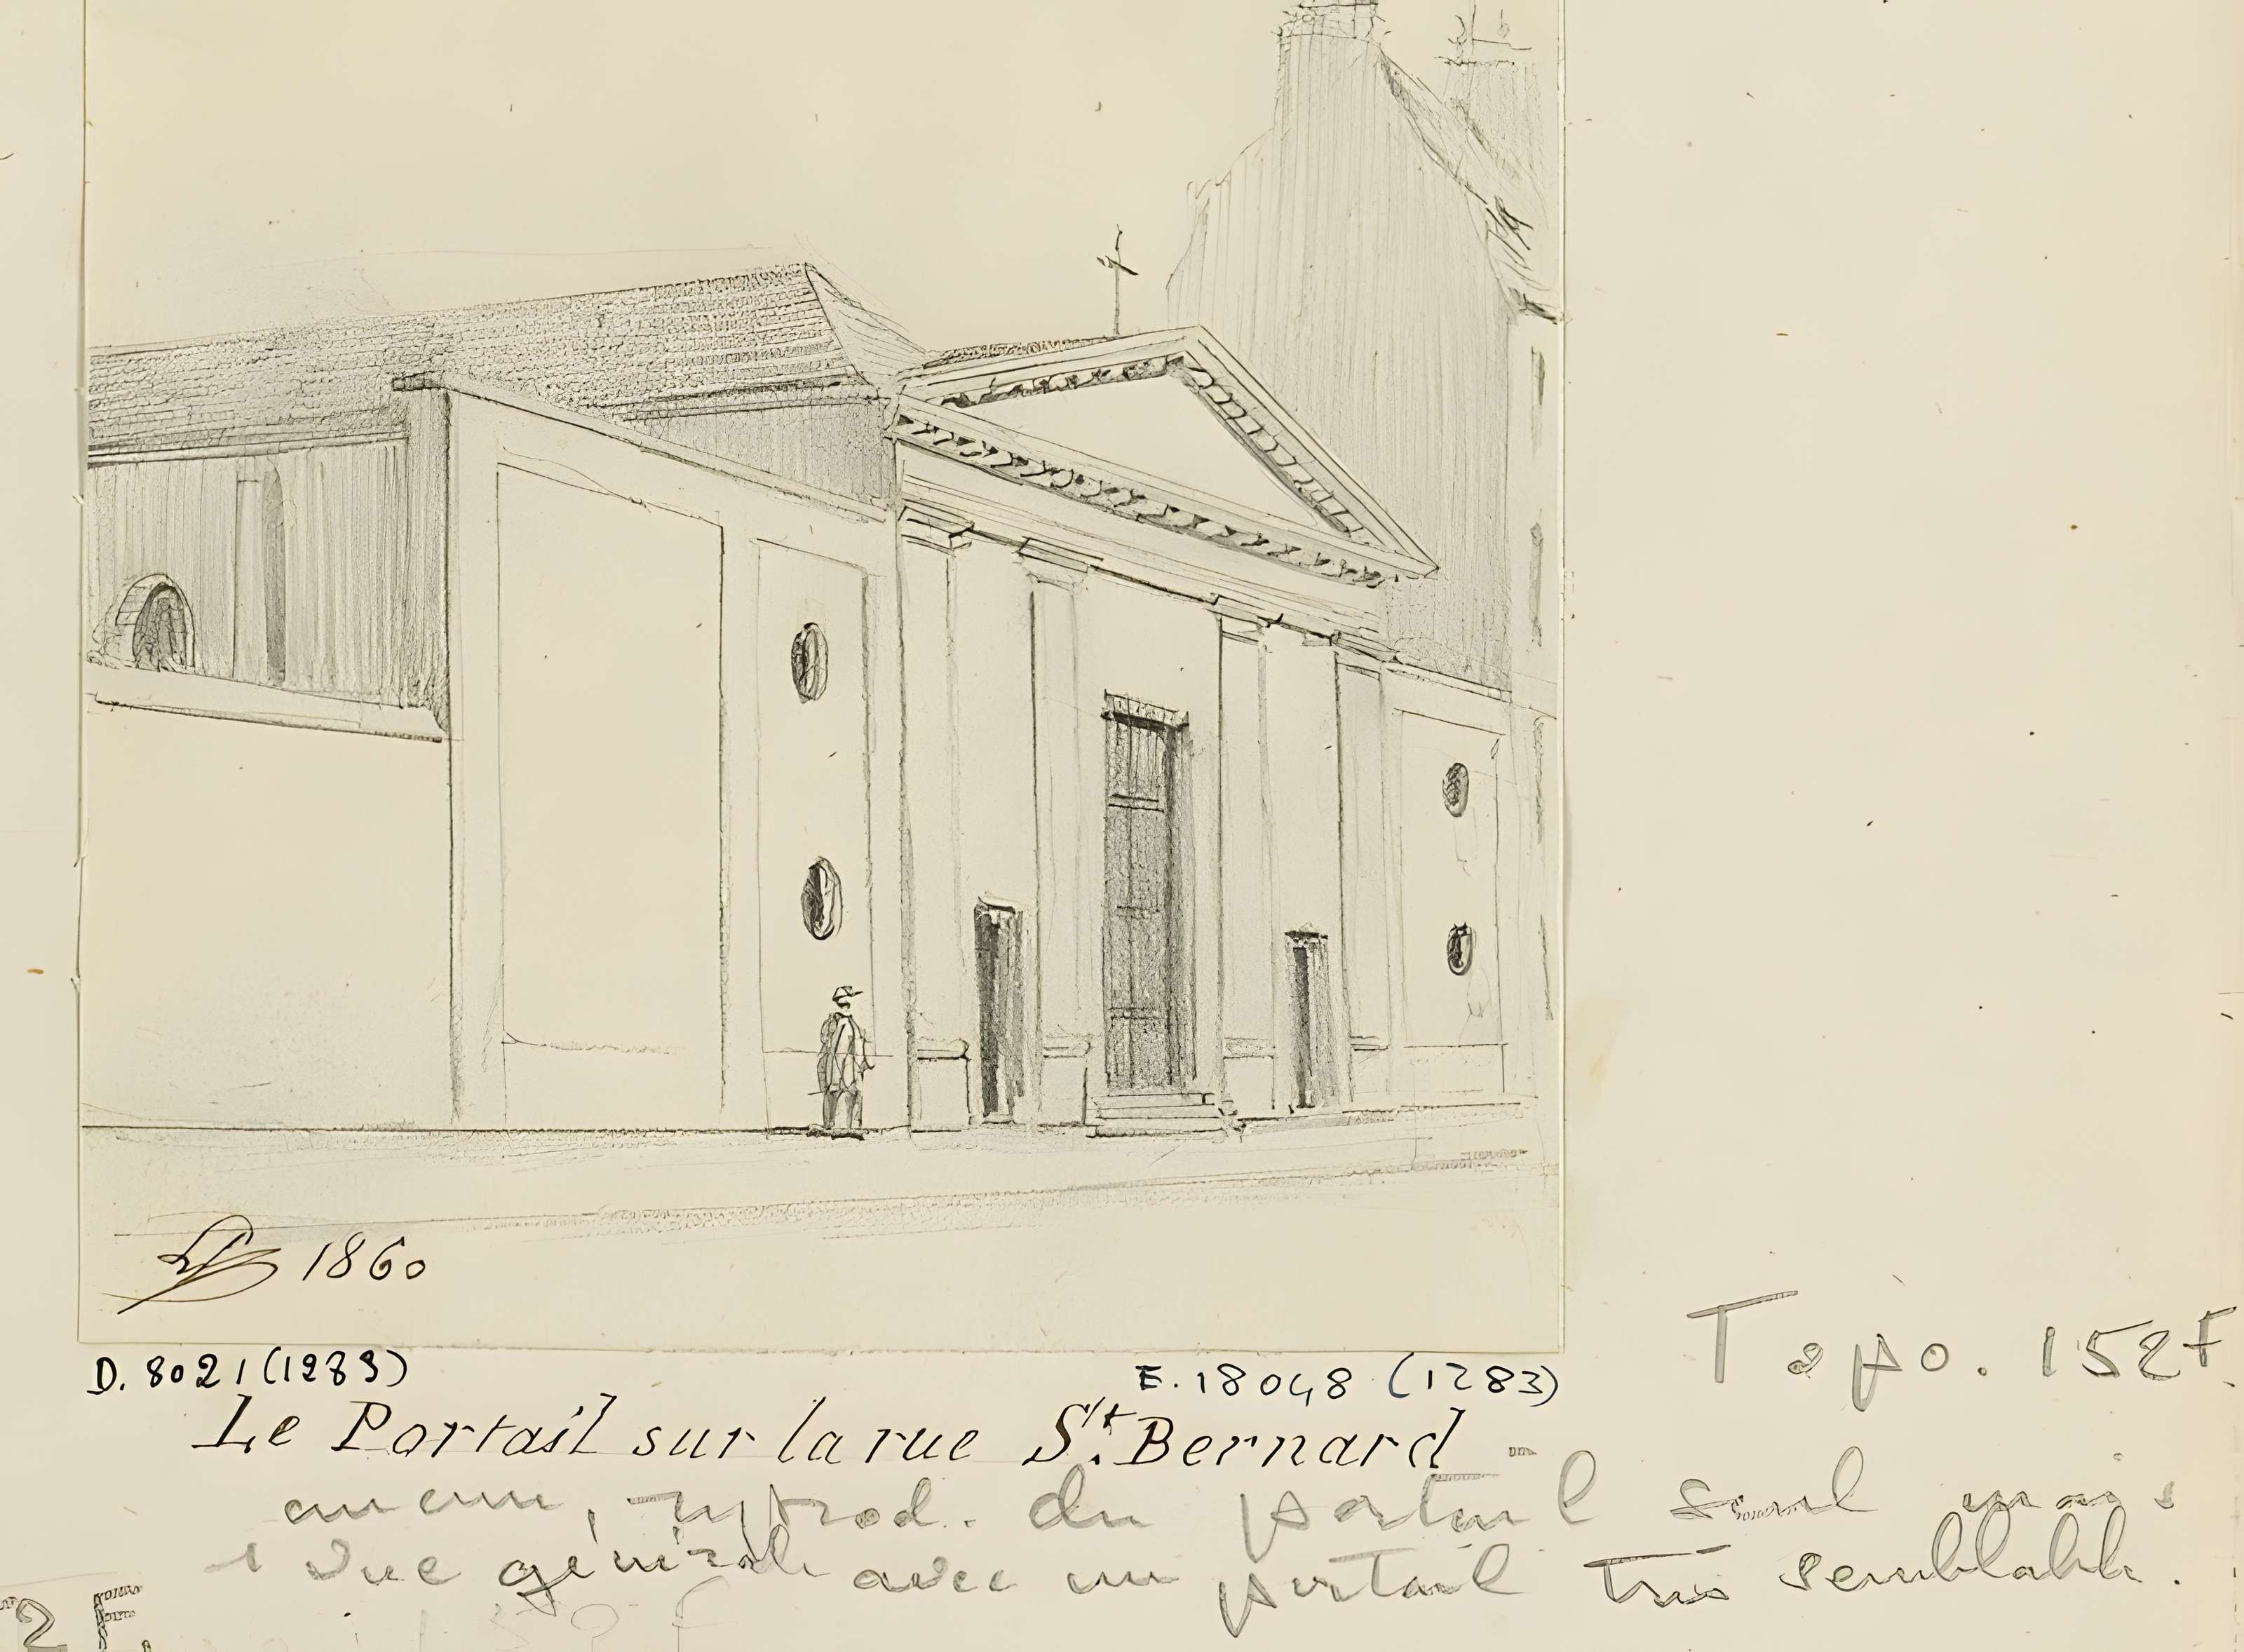 1860
D. 8021 (1283)
E. 18048 (1283)
Topo. 152 F
Le Portail sur la rue St. Bernard
aucune reprod. du portail seul mais
1 vue générale avec un portail très semblable.